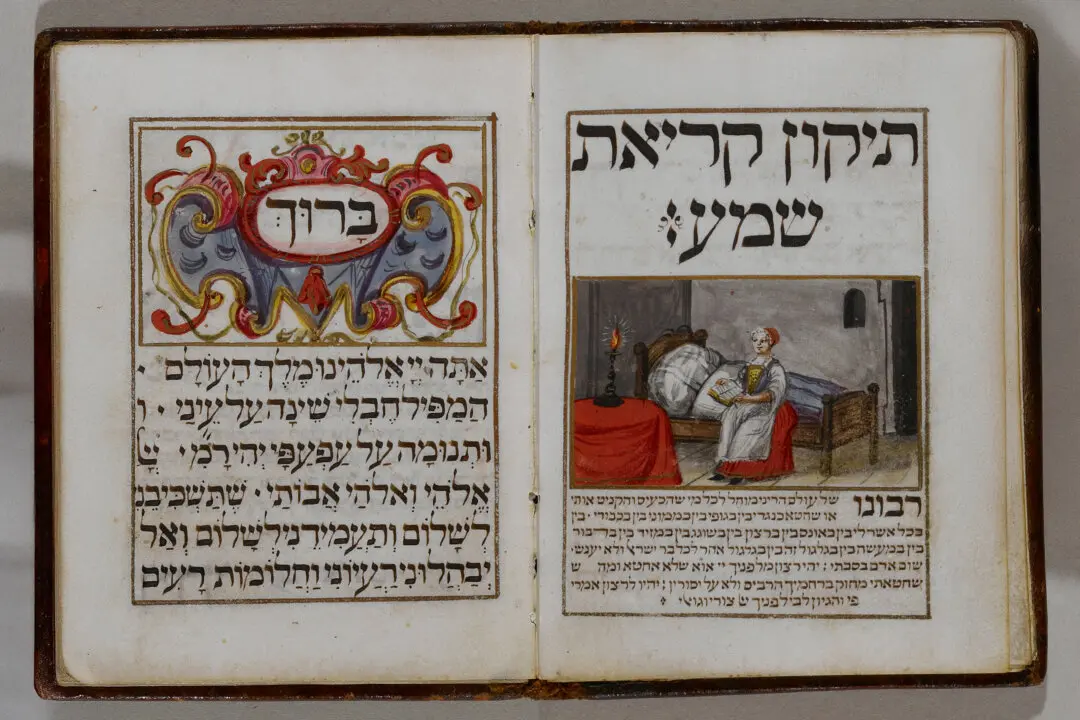 תיקון קריאת
שמע:
רבונו של עולם הריני מוחל לכל מי שהכעיס והקניט אותי
או שחטא כנגדי בין בגופי בין בממוני בין בכבודי · בין
בכל אשר לי בין באונס בין ברצון בין בשוגג בין במזיד בין בדבור
בין במעשה בין בגלגול זה בין בגלגול אחר לכל בר ישרא' ולא יענש
שום אדם בסבתי : יהי רצון מלפניך יי' אוא שלא אחטא ומה ש
שחטאתי מחוק ברחמיך הרבים ולא על יסורין : יהיו לרצון אמרי
פי והגיון לבי לפניך צורי וגואלי :
בָּרוּךְ
אַתָּה יְיָ אֱלֹהֵינוּ מֶלֶךְ הָעוֹלָם ·
הַמַפִּיל חֶבְלֵי שֵׁינָה עַל עֵינַי · ו
וּתְנוּמָה עַל עַפְעַפַּי יְהִי
אֱלֹהַי וֵאלֹהֵי אֲבוֹתַי · שֶׁתַּשְׁכִּיבֵנִ
לְשָׁלוֹם וְתַעֲמִידֵנִי לְשָׁלוֹם וְאַל
יְבַהֲלוּנִי רַעְיוֹנַי וַחֲלוֹמוֹת רָעִים